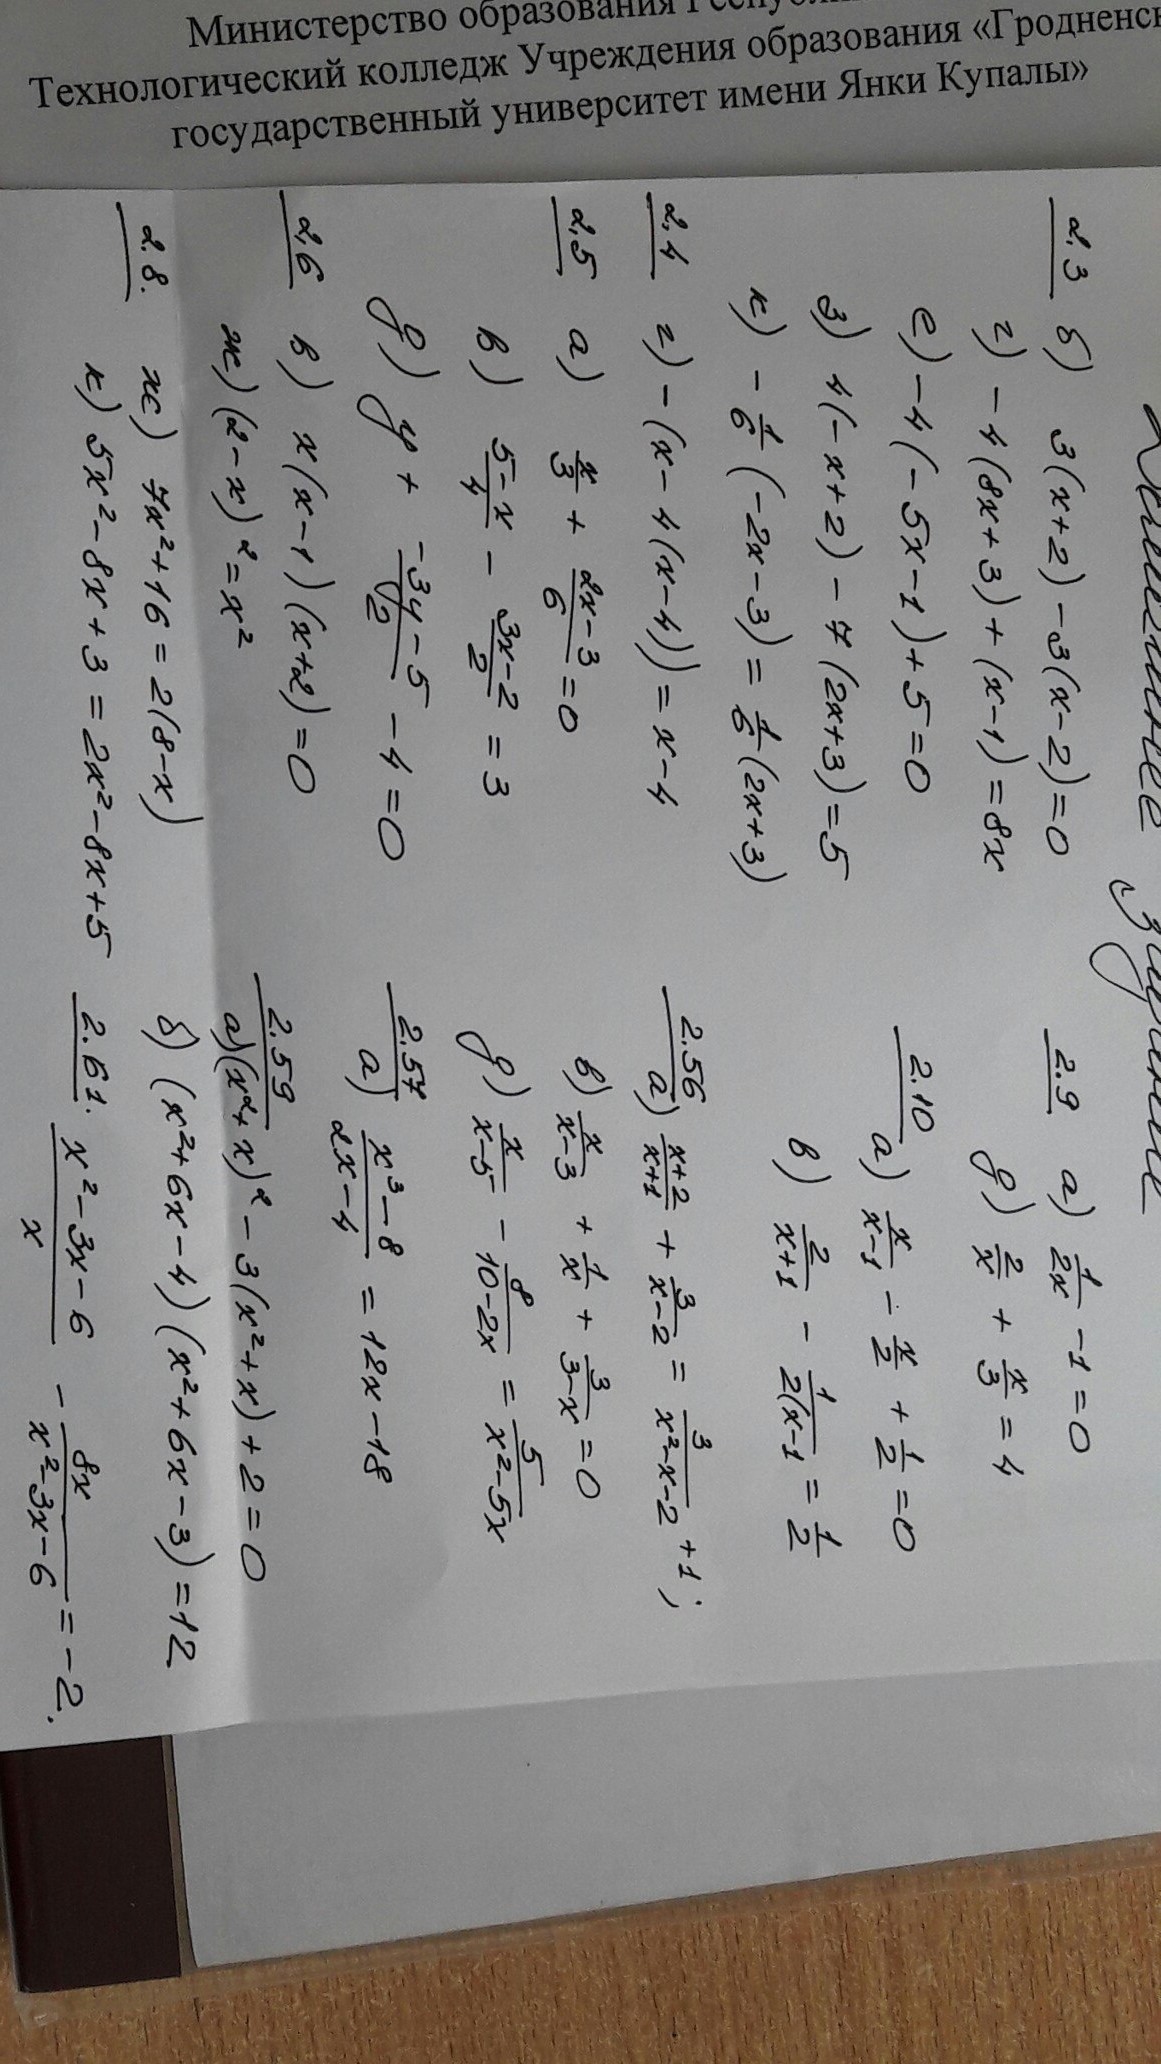 Министерство образования
Технологический колледж Учреждения образования «Гродненс
государственный университет имени Янки Купалы»
задание
2.3 б) 3(x+2)-3(x-2)=0
г) -4(8x+3)+(x-1)=8x
е) -4(-5x-1)+5=0
з) 4(-x+2)-7(2x+3)=5
к) -1/6(-2x-3)=1/6(2x+3)
2.4 г) -(x-4(x-4))=x-4
2.5 а) x/3 + (2x-3)/6 = 0
в) (5-x)/4 - (3x-2)/2 = 3
д) y + (-3y-5)/2 - 4 = 0
2.6 в) x(x-1)(x+2)=0
ж) (2-x)²=x²
2.8. ж) 7x²+16=2(8-x)
к) 5x²-8x+3=2x²-8x+5
2.9 а) 1/2x - 1 = 0
д) 2/x + x/3 = 4
2.10 а) x/(x-1) - x/2 + 1/2 = 0
в) 2/(x+1) - 1/2(x-1 = 1/2
2.56 а) (x+2)/(x+1) + 3/(x-2) = 3/(x²-x-2) + 1;
в) x/(x-3) + 1/x + 3/(3-x) = 0
д) x/(x-5) - 8/(10-2x) = 5/(x²-5x)
2.57 а) (x³-8)/(2x-4) = 12x-18
2.59 а) (x²+x)²-3(x²+x)+2=0
б) (x²+6x-4)(x²+6x-3)=12
2.61. (x²-3x-6)/x - 8x/(x²-3x-6) = -2.